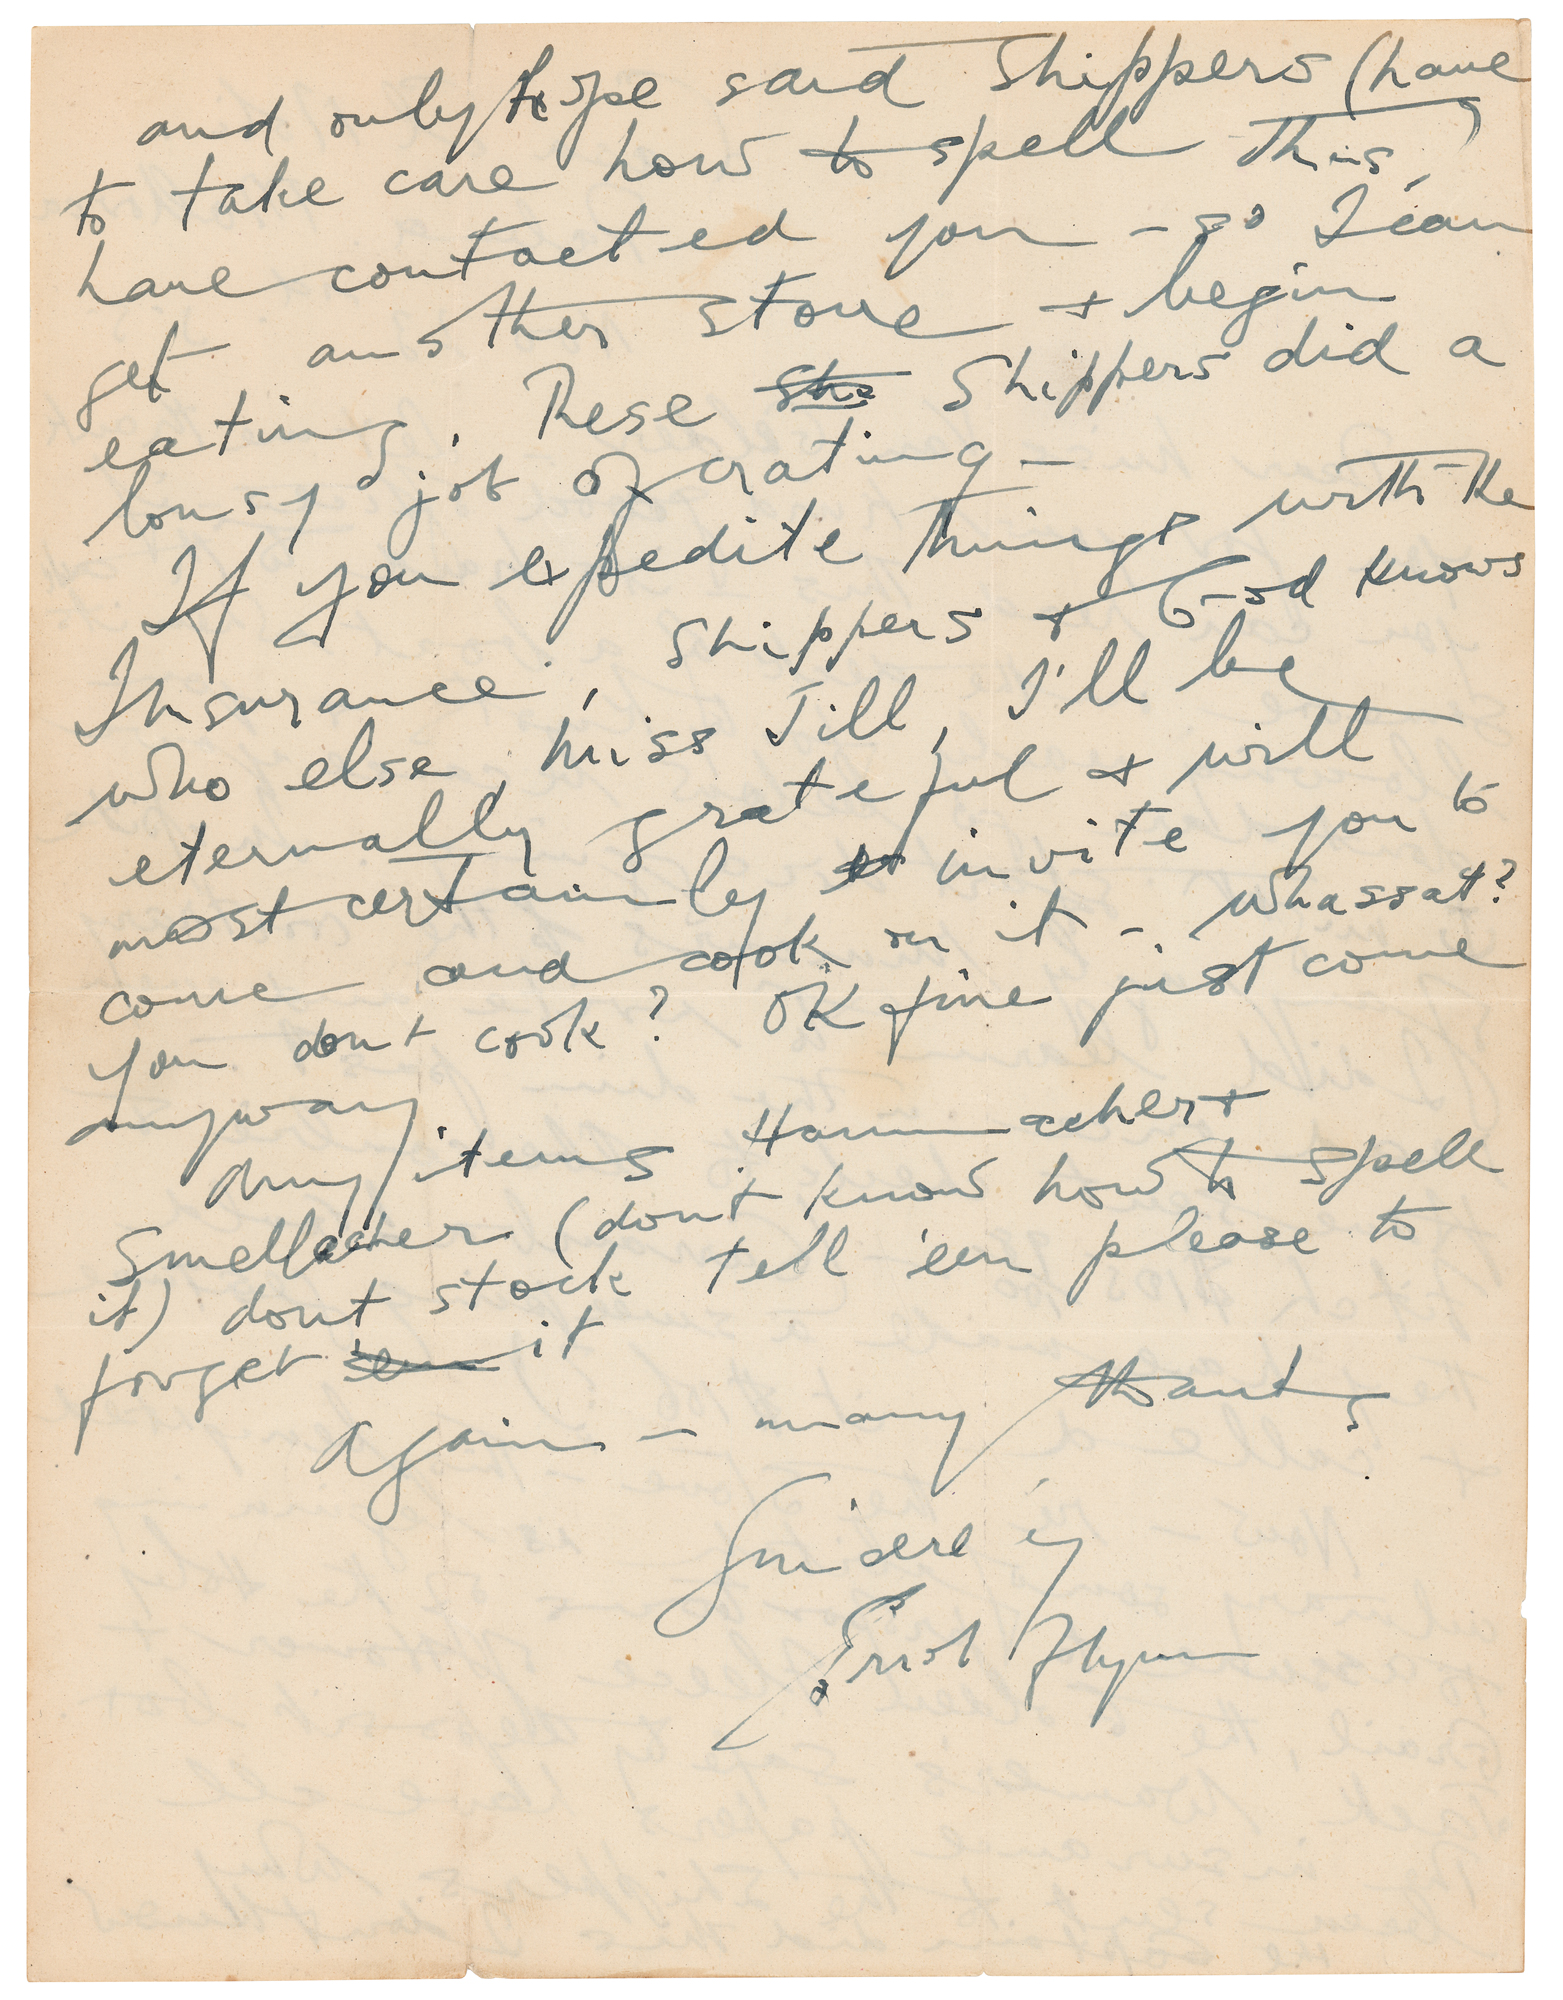 and only hope said shippers (have
to take care how to spell this)
have contacted you - so I can
get another stove + begin
eating. These sh Shippers did a
lousy job of crating -
If you expedite things with the
Insurance, shippers + God knows
who else, miss Jill, I'll be
eternally grateful + will
most certainly invite you to
come and cook on it - Whassat?
You dont cook? OK fine just come
anyway
Any items Hammacher +
Smellacher (dont know how to spell
it) dont stock tell 'em please to
forget 'em it
Again - many thanks
Sincerely
Errol Flynn